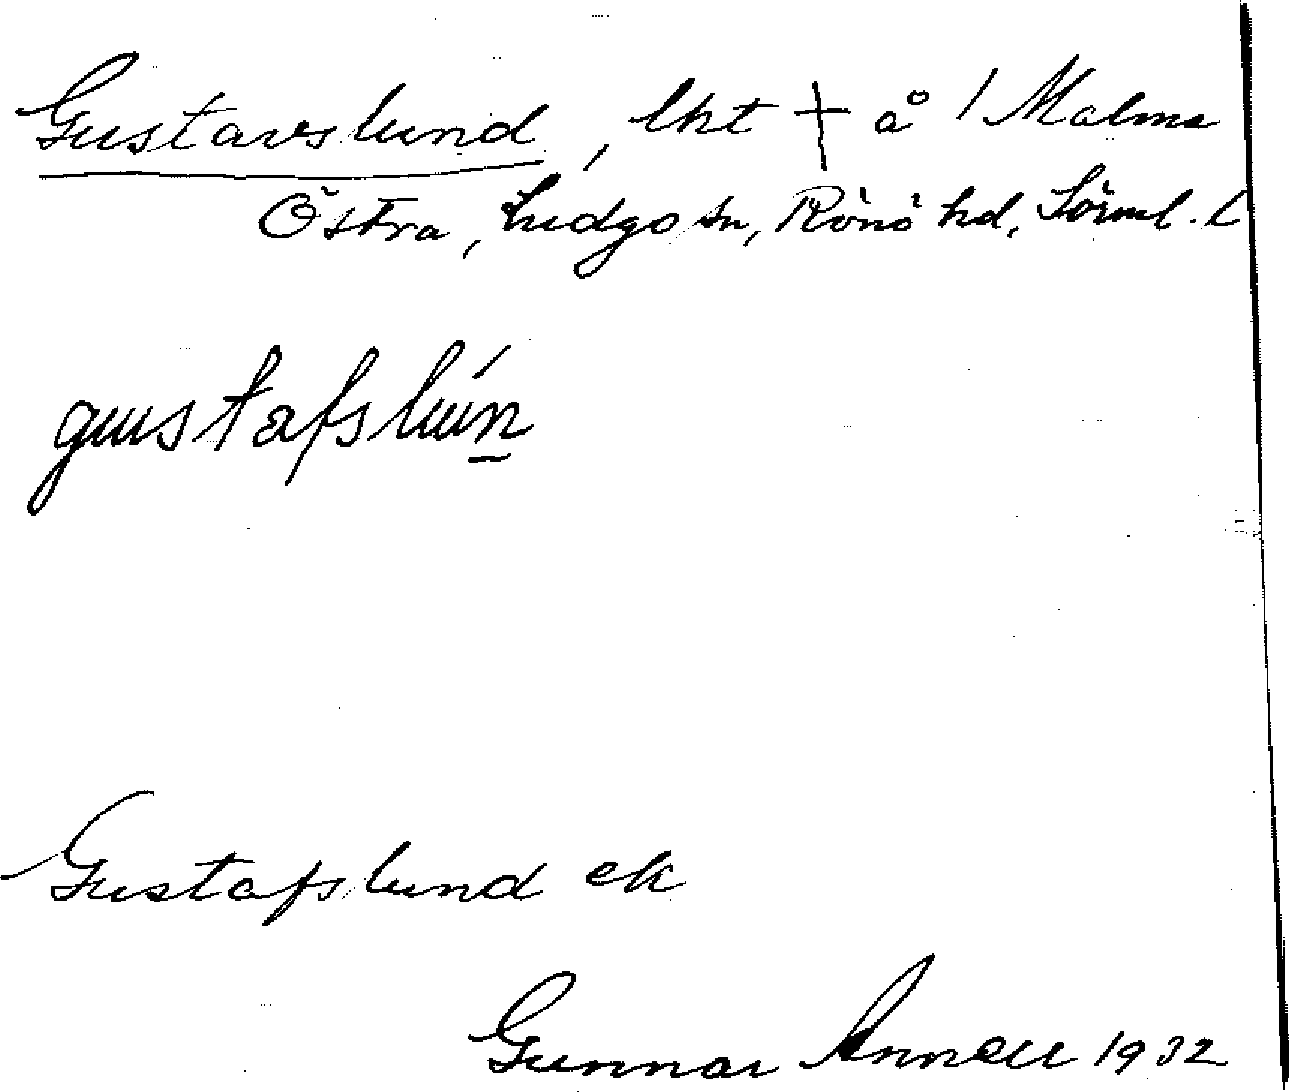 Gustavslund, lht + å 1 Malma
Östra, Ludgo sn, Rönö hd, Sörml. l
gustafslún
Gustafslund ek
Gunnar Annell 1932